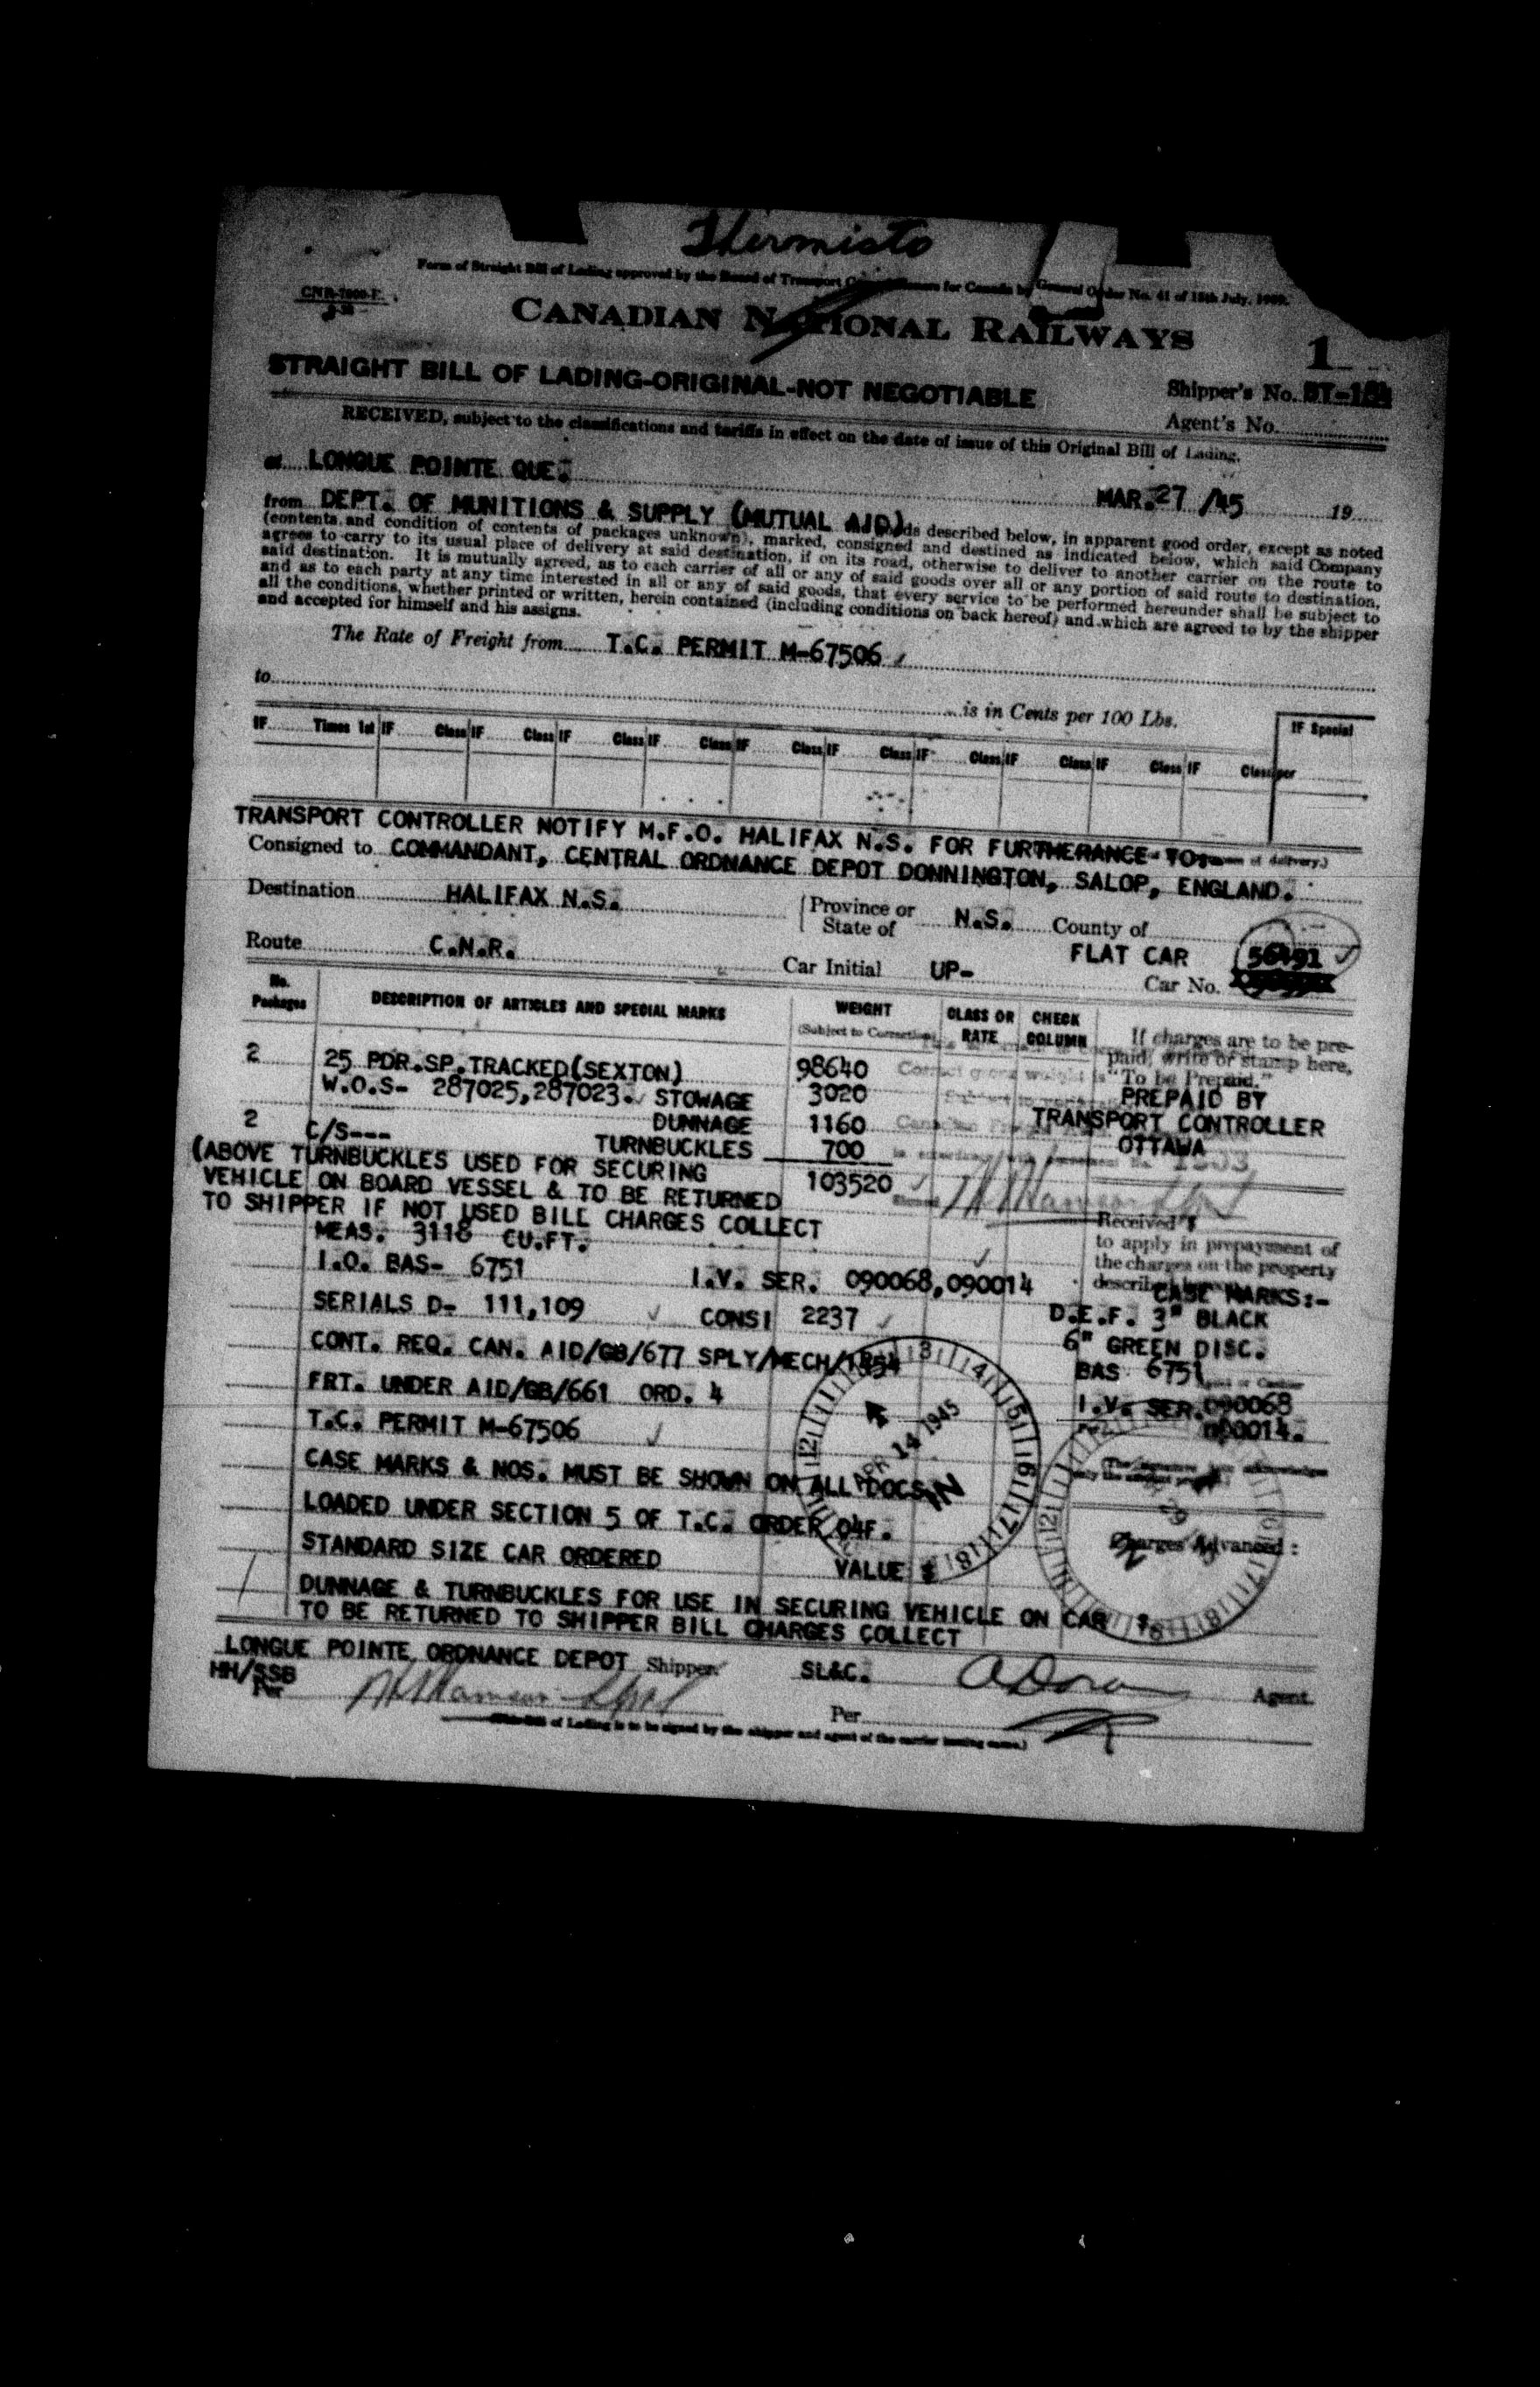 Thermisto
Form of Straight Bill of Lading approved by the Board of Transport for Canada by General Order No. 41 of 15th July, 1909.
CANADIAN NATIONAL RAILWAYS
1
STRAIGHT BILL OF LADING-ORIGINAL-NOT NEGOTIABLE
Shipper's No.
Agent's No.
RECEIVED, subject to the classifications and tariffs in effect on the date of issue of this Original Bill of Lading,
at LONGUE POINTE QUE. MAR. 27 /45 19
from DEPT. OF MUNITIONS & SUPPLY (MUTUAL AID) goods described below, in apparent good order, except as noted
(contents and condition of contents of packages unknown), marked, consigned and destined as indicated below, which said Company
agrees to carry to its usual place of delivery at said destination, if on its road, otherwise to deliver to another carrier on the route to
said destination. It is mutually agreed, as to each carrier of all or any of said goods over all or any portion of said route to destination,
and as to each party at any time interested in all or any of said goods, that every service to be performed hereunder shall be subject to
all the conditions, whether printed or written, herein contained (including conditions on back hereof) and which are agreed to by the shipper
and accepted for himself and his assigns.
The Rate of Freight from T.C. PERMIT M-67506
to is in Cents per 100 Lbs.
IF Times 1st IF Class IF Class IF Class IF Class IF Class IF Class IF Class IF Class IF Class IF Class per IF Special
TRANSPORT CONTROLLER NOTIFY M.F.O. HALIFAX N.S. FOR FURTHERANCE TO:
Consigned to COMMANDANT, CENTRAL ORDNANCE DEPOT DONNINGTON, SALOP, ENGLAND.
Destination HALIFAX N.S. Province or State of N.S. County of
Route C.N.R. Car Initial UP- FLAT CAR Car No. 56491
No. Packages DESCRIPTION OF ARTICLES AND SPECIAL MARKS WEIGHT (Subject to Correction) CLASS OR RATE CHECK COLUMN
If charges are to be pre-
paid, write or stamp here,
"To be Prepaid."
2 25 PDR.SP.TRACKED(SEXTON) 98640
W.O.S- 287025,287023. STOWAGE 3020 PREPAID BY
2 C/S--- DUNNAGE 1160 TRANSPORT CONTROLLER
TURNBUCKLES 700 OTTAWA
(ABOVE TURNBUCKLES USED FOR SECURING 103520
VEHICLE ON BOARD VESSEL & TO BE RETURNED
TO SHIPPER IF NOT USED BILL CHARGES COLLECT
Received $
to apply in prepayment of
the charges on the property
described
MEAS. 3118 CU.FT.
I.O. BAS- 6751 I.V. SER. 090068,090014
CASE MARKS:-
SERIALS D- 111,109 CONSI 2237 D.E.F. 3" BLACK
6" GREEN DISC.
CONT. REQ. CAN. AID/GB/677 SPLY/MECH/1854 BAS 6751
FRT. UNDER AID/GB/661 ORD. 4 I.V. SER.090068
090014.
T.C. PERMIT M-67506
CASE MARKS & NOS. MUST BE SHOWN ON ALL DOCS.
APR 14 1945
IN
LOADED UNDER SECTION 5 OF T.C. ORDER 04F.
Charges Advanced:
STANDARD SIZE CAR ORDERED VALUE $
DUNNAGE & TURNBUCKLES FOR USE IN SECURING VEHICLE ON CAR $
TO BE RETURNED TO SHIPPER BILL CHARGES COLLECT
LONGUE POINTE ORDNANCE DEPOT Shipper. SL&C. Agent.
HH/SSB
Per Per
(This Bill of Lading is to be signed by the shipper and agent of the carrier issuing same.)